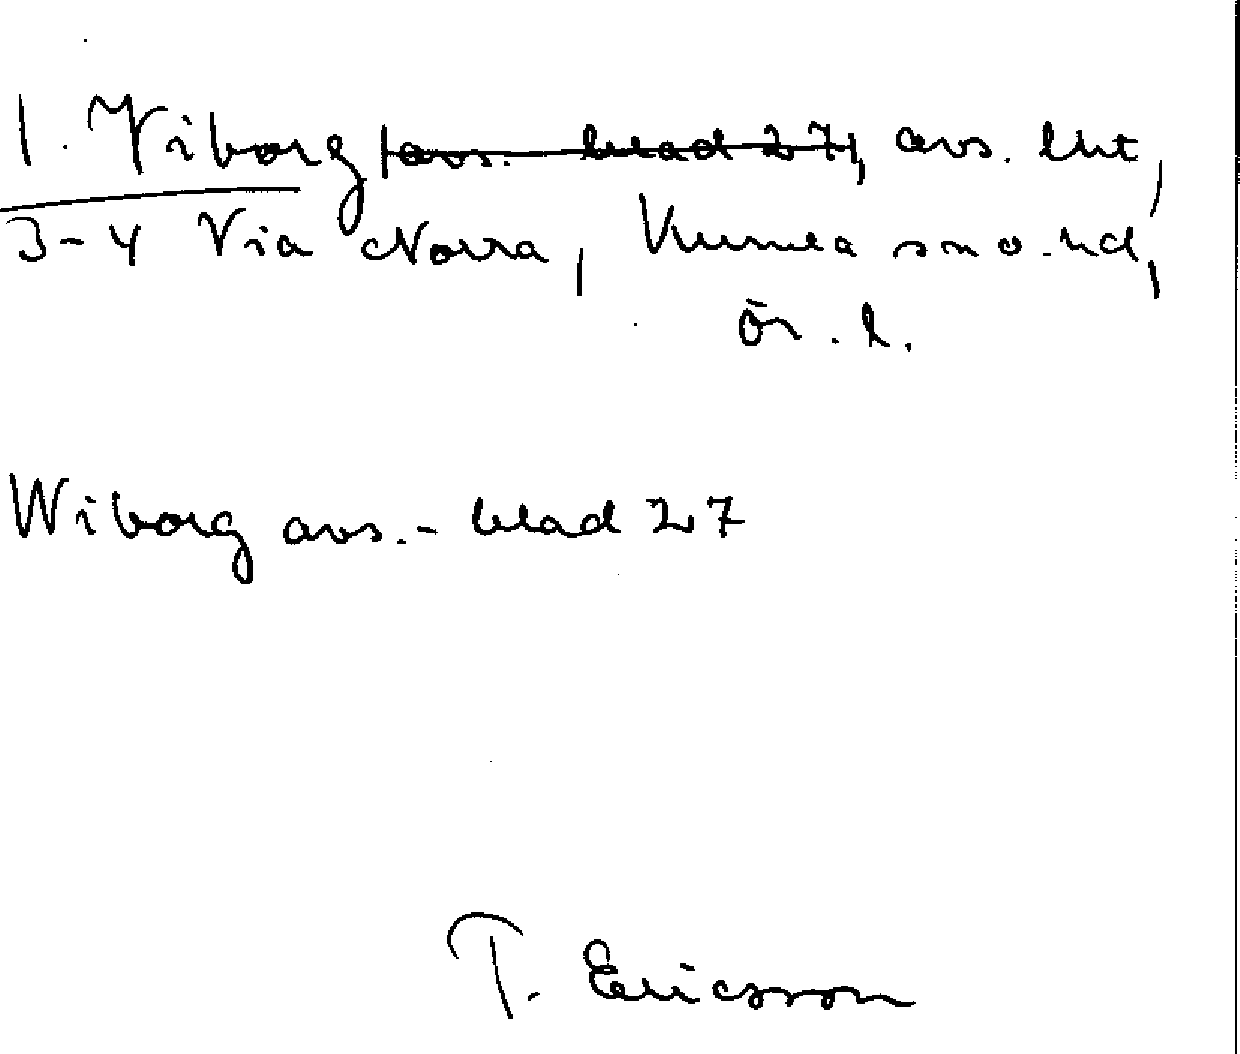 1. Viborg avs. blad 27, avs. lht,
3-4 Via Norra, Kumla sn o. hd,
Ör. l.
Wiborg avs. - blad 27
T. Ericsson